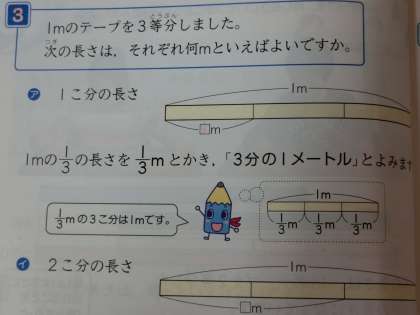 3
1mのテープを3等分しました。
次の長さは,それぞれ何mといえばよいですか。
ア 1こ分の長さ
1m
□m
1mの1/3の長さを1/3mとかき,「3分の1メートル」とよみま
1/3mの3こ分は1mです。
1m
1/3m 1/3m 1/3m
イ 2こ分の長さ
1m
□m